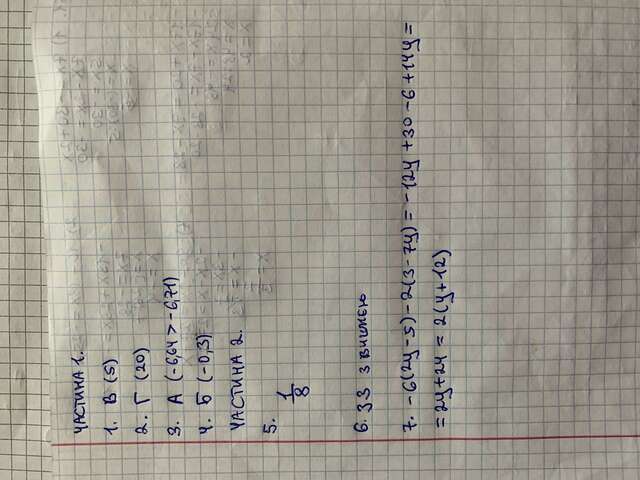 ЧАСТИНА 1.
1. В (5)
2. Г (20)
3. А (-6,64 > -6,71)
4. Б (-0,3)
ЧАСТИНА 2.
5. 1/8
6. 33 з вишнею
7. -6(2y-5)-2(3-7y) = -12y+30-6+14y=
=2y+24 = 2(y+12)